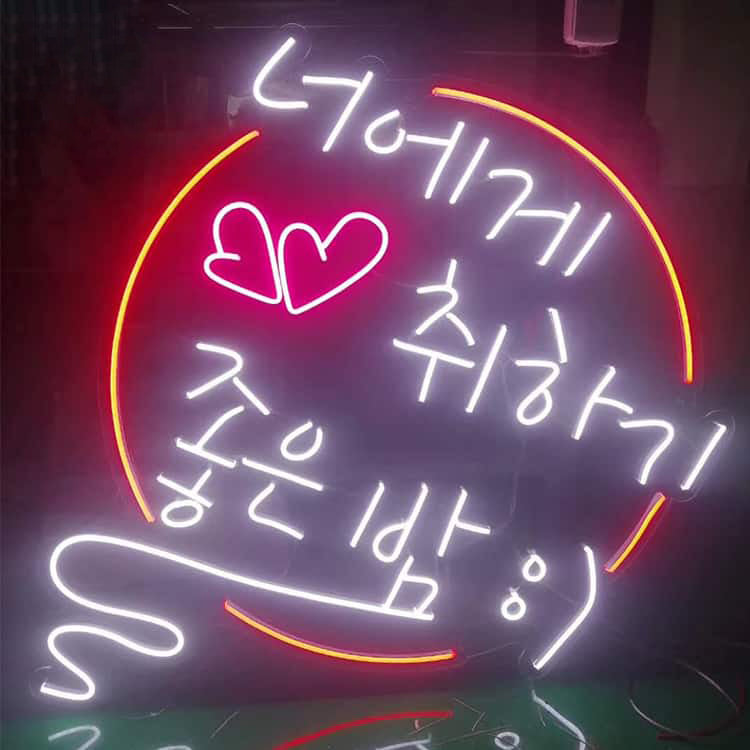 너에게
취하기
좋은 밤 :)